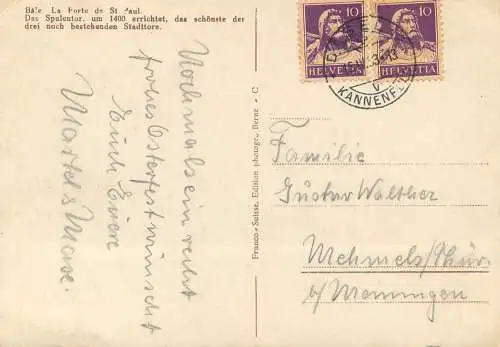 Bâle La Porte de St Paul.
Das Spalentor, um 1400 errichtet, das schönste der
drei noch bestehenden Stadttore.
Nochmals ein recht
frohes Osterfest wünscht
Euch Eure
Martel & Max.
Franco-Suisse, Edition photogr., Berne - C
10
HELVETIA
10
HELVETIA
KANNENFELD
V
Familie
Gustav Walther
Mehmels/Thür.
b/Meiningen